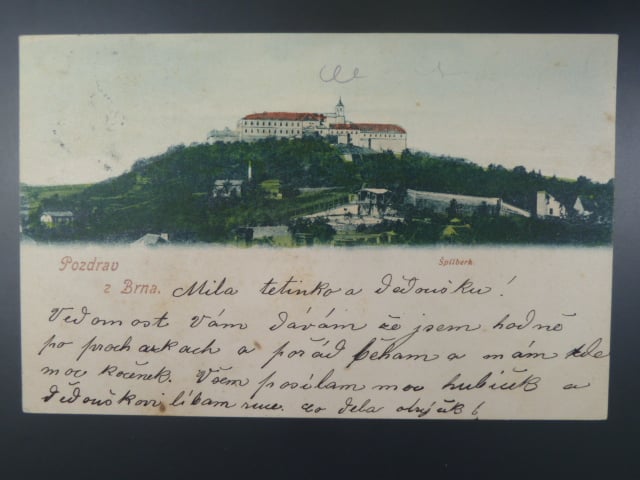 Pozdrav
z Brna.
Špilberk.
Mila tetinko a děďoušku!
Vědomost Vám dávám že jsem hodně
po procházkach a pořád běham a mám zde
moc koček. Všem posílam moc hubiček a
děďouškovi líbam ruce. co dela